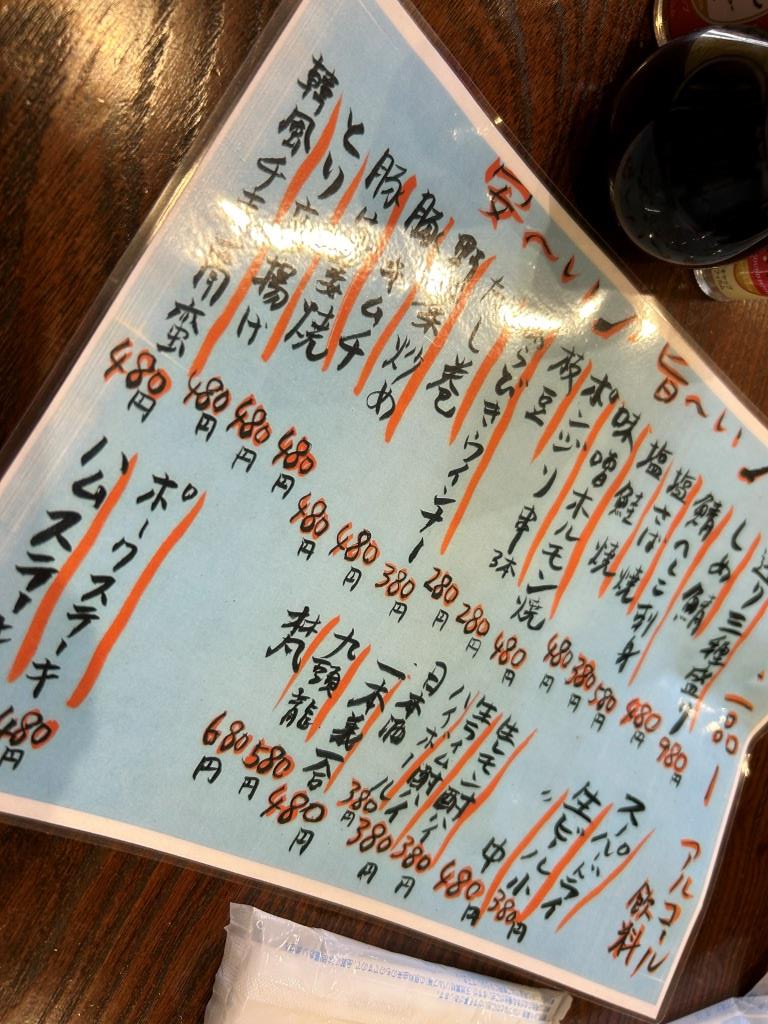 安〜い♪旨〜い♪
造り三種盛り 一〇〇〇ー
しめ鯖 980円
鯖へしこ刺身 480円
塩さば焼 580円
塩鮭焼 380円
味噌ホルモン焼 480円
ボンジリ串 3本 480円
枝豆 280円
あらびきウインナー 280円
だし巻 380円
野菜炒め 480円
豚キムチ 480円
とり 焼 480円
揚げ 480円
韓風チ 南蛮 480円
ポークステーキ
ハムステーキ 480円
アルコール飲料
スーパードライ
生ビール 中 480円
〃 小 380円
生レモン酎ハイ 380円
生ライム酎ハイ 380円
ハイボール 380円
日本酒
一本義 一合 480円
九頭龍 580円
梵 680円